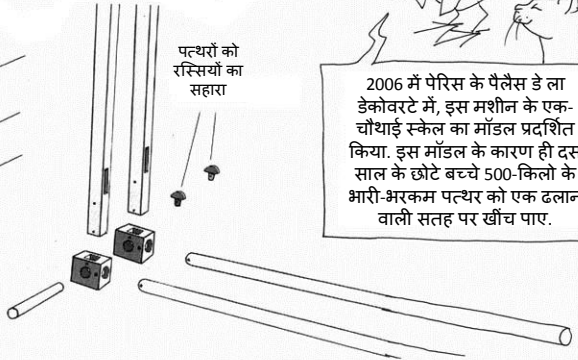 पत्थरों को
रस्सियों का
सहारा
2006 में पेरिस के पैलैस डे ला
डेकोवरटे में, इस मशीन के एक-
चौथाई स्केल का मॉडल प्रदर्शित
किया. इस मॉडल के कारण ही दस
साल के छोटे बच्चे 500-किलो के
भारी-भरकम पत्थर को एक ढलान
वाली सतह पर खींच पाए.